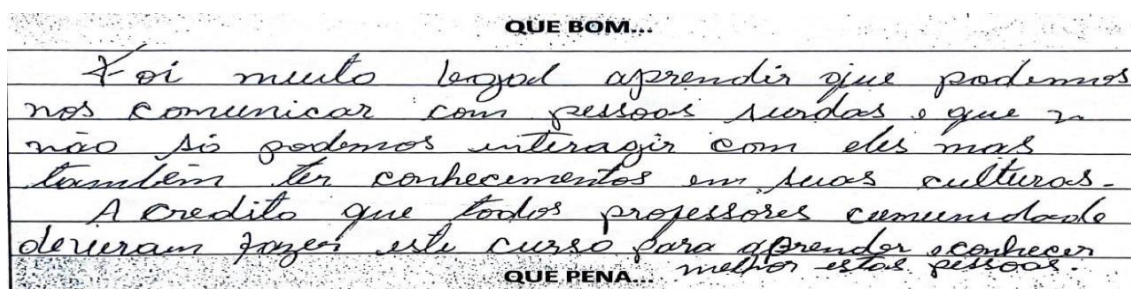 QUE BOM...
Foi muito legal aprendir que podemos
nos comunicar com pessoas surdas e que
não só podemos interagir com eles mas
também ter conhecimentos em suas culturas.
Acredito que todos professores comunidade
deveram fazer este curso para aprender e conhecer
melhor estas pessoas.
QUE PENA...